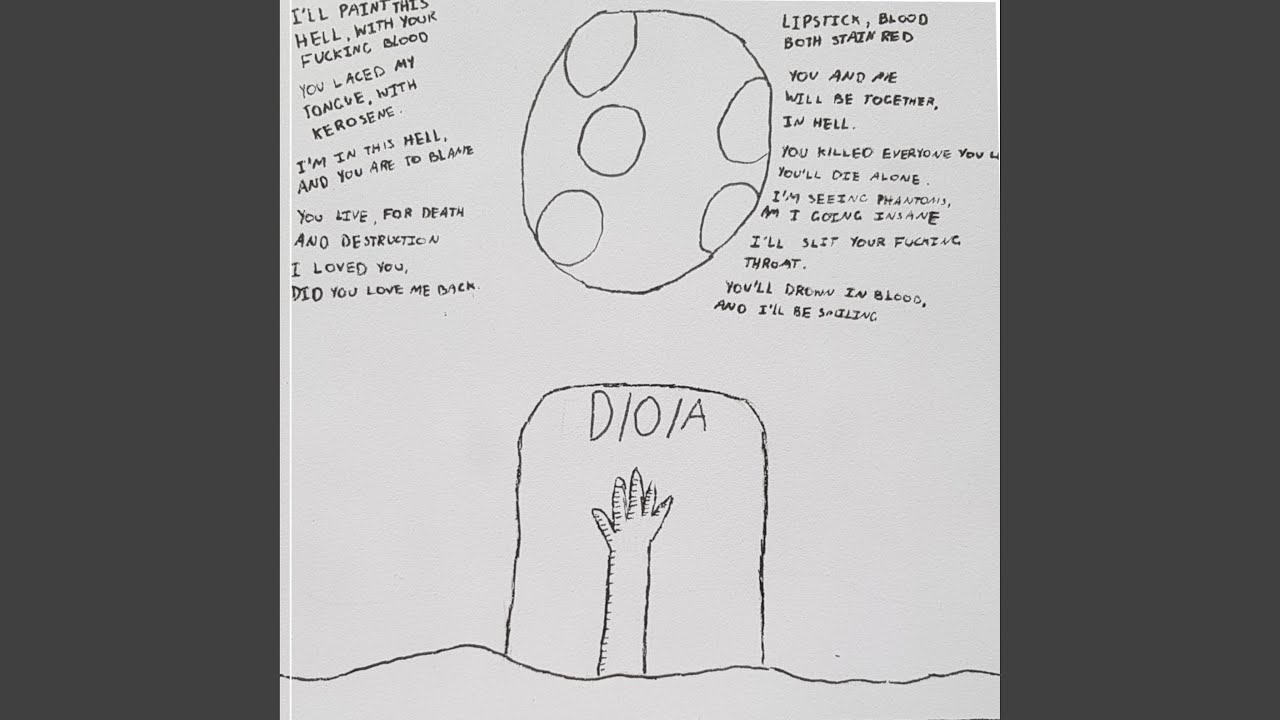 I'LL PAINT THIS
HELL, WITH YOUR
FUCKING BLOOD
YOU LACED MY
TONGUE, WITH
KEROSENE.
I'M IN THIS HELL,
AND YOU ARE TO BLAME
YOU LIVE, FOR DEATH
AND DESTRUCTION
I LOVED YOU,
DID YOU LOVE ME BACK.
LIPSTICK, BLOOD
BOTH STAIN RED
YOU AND ME
WILL BE TOGETHER,
IN HELL.
YOU KILLED EVERYONE YOU
YOU'LL DIE ALONE.
I'M SEEING PHANTOMS,
AM I GOING INSANE
I'LL SLIT YOUR FUCKING
THROAT.
YOU'LL DROWN IN BLOOD,
AND I'LL BE SMILING
D/O/A